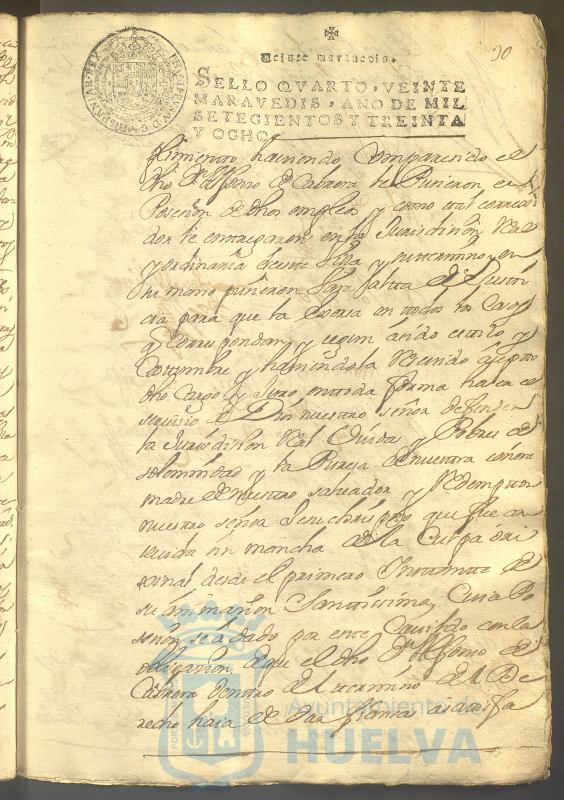 30
Veinte maravedis.
SELLO QVARTO, VEINTE
MARAVEDIS, AÑO DE MIL
SETECIENTOS Y TREINTA
Y OCHO.
haviendo Comparecido el
dho Dn Alfonso de Cabrera le Pusieron en
Posesion de dhos empleos y como tal corregi
dor le entregaron la Jurisdision Real
y ordinaria de este Villa y en
su mano pusieron la de Justi
cia para que la en todos los casos
q Correspondan y segun a sido estilo y
Costumbre y haviendola Recivido
dho Cargo y Juro en toda forma hacer el
servisio de Dios nuestro señor defender
la Jurisdision Real Viuda y Pobres de
solemnidad y la Puresa de nuestra señora
madre de nuestro salvador y Redemptor
nuestro señor Jesuchristo que fue con
sevida sin mancha de la Culpa ori
ginal desde el primero Instante de
su animasion Santissima, Cuia Po
sesion se a dado por este Cavildo con la
obligasion de que el dho Dn Alfonso de
Cabrera dentro del termino del De
recho haia de Dar fianza
Ayuntamiento de
HUELVA